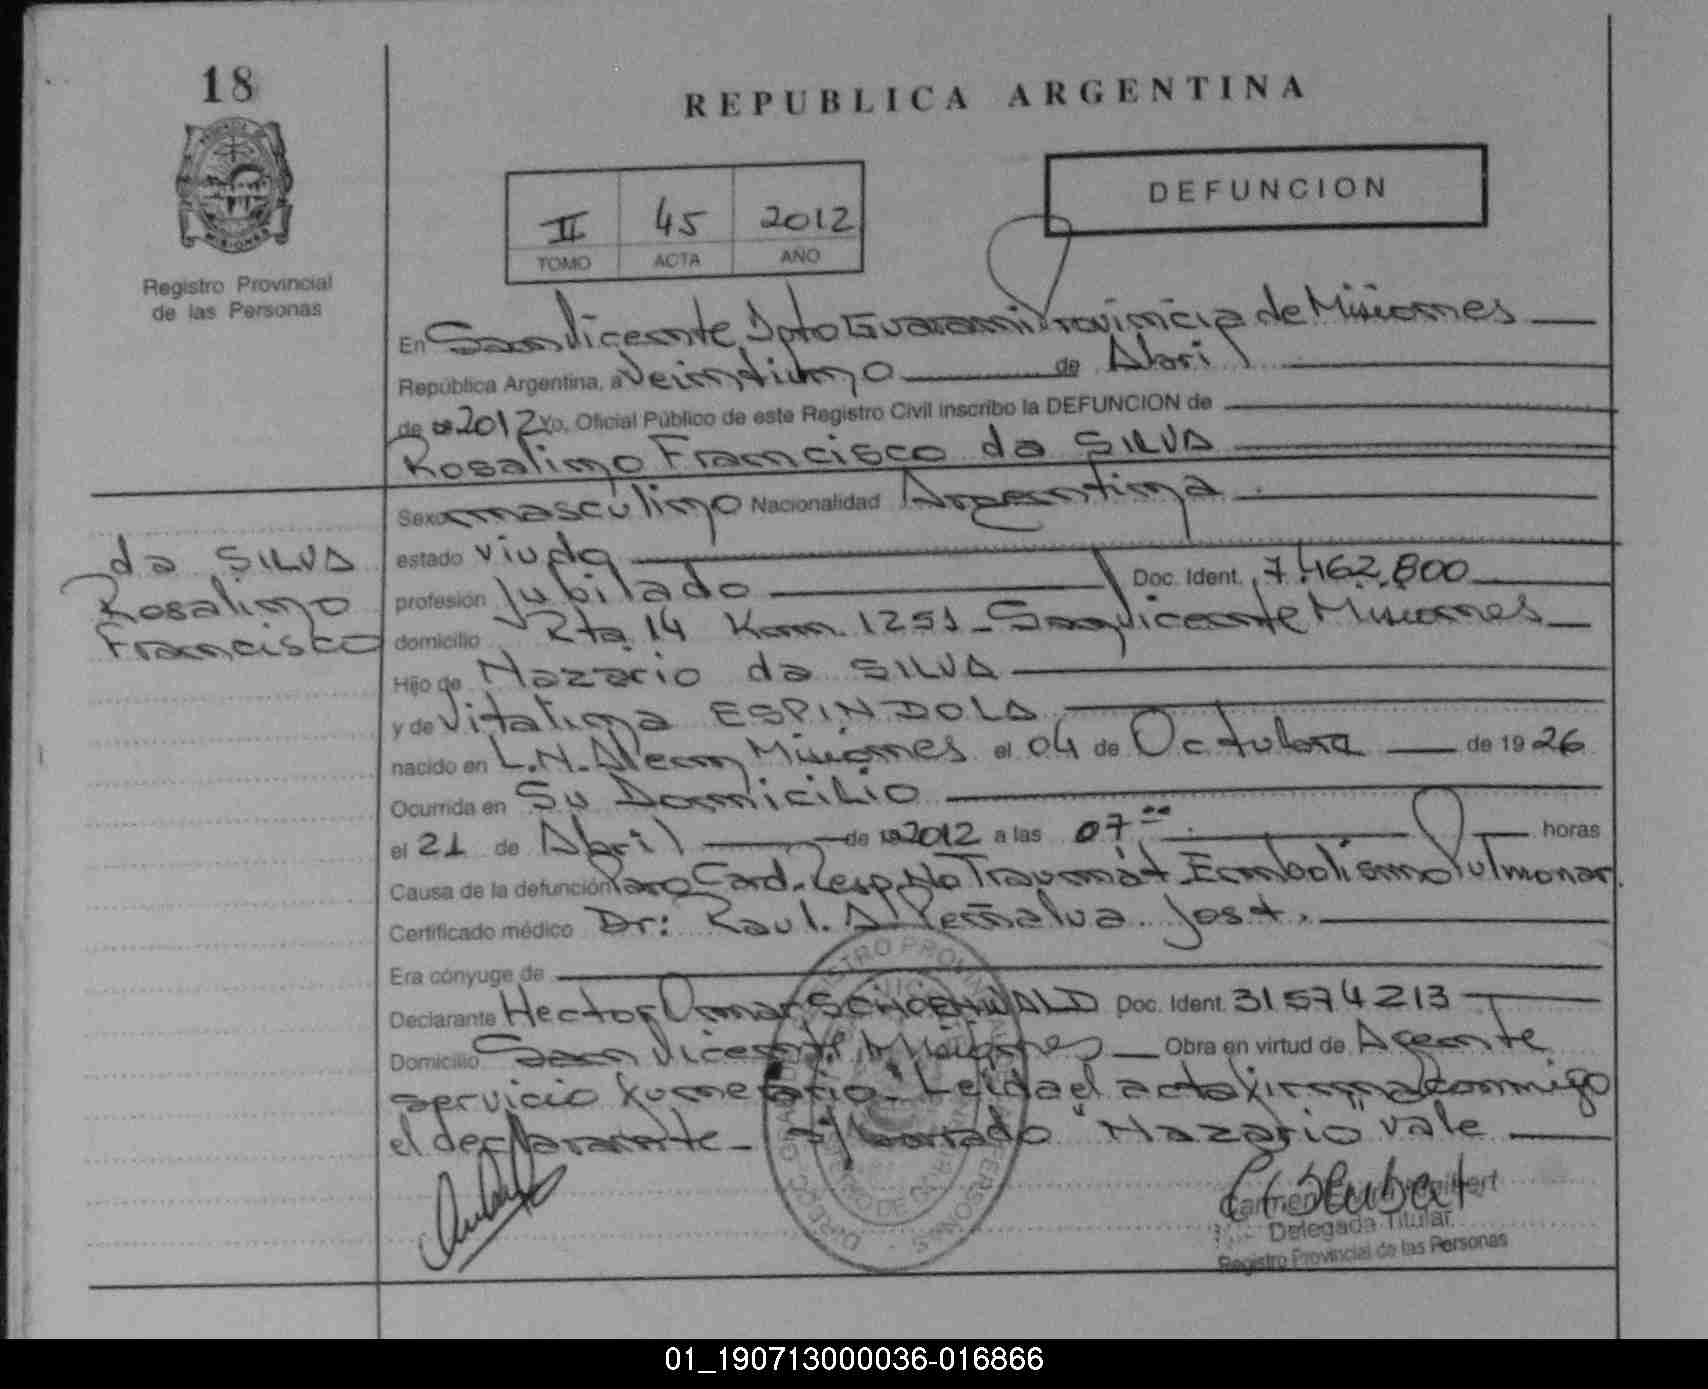 18
REPUBLICA ARGENTINA
DEFUNCION
II 45 2012
TOMO ACTA AÑO
MISIONES
Registro Provincial
de las Personas
En San Vicente Dpto Guarani Provincia de Misiones
República Argentina, a Veintiuno de Abril
de 2012 Yo, Oficial Público de este Registro Civil inscribo la DEFUNCION de
Rosalino Francisco da SILVA
Sexo masculino Nacionalidad Argentina
da SILVA
Rosalino
Francisco
estado viudo
profesión Jubilado Doc. Ident. 7.462.800
domicilio Rta 14 Km. 1251 - San Vicente Misiones
Hijo de Nazario da SILVA
y de Vitalina ESPINDOLA
nacido en L.N. Alem Misiones el 04 de Octubre de 1926
Ocurrida en Su Domicilio
el 21 de Abril de 2012 a las 07 horas
Causa de la defunción Paro Card. Resp. No Traumát. Embolismo Pulmonar
Certificado médico Dr: Raul. A. Peñalva José.
Era cónyuge de
Declarante Hector Omar SCHOENWALD Doc. Ident. 31574213
Domicilio San Vicente Misiones Obra en virtud de Agente
servicio funerario. Leida el acta firma conmigo
el declarante - "Nazario" Vale
Delegada Titular
Registro Provincial de las Personas
01_190713000036-016866